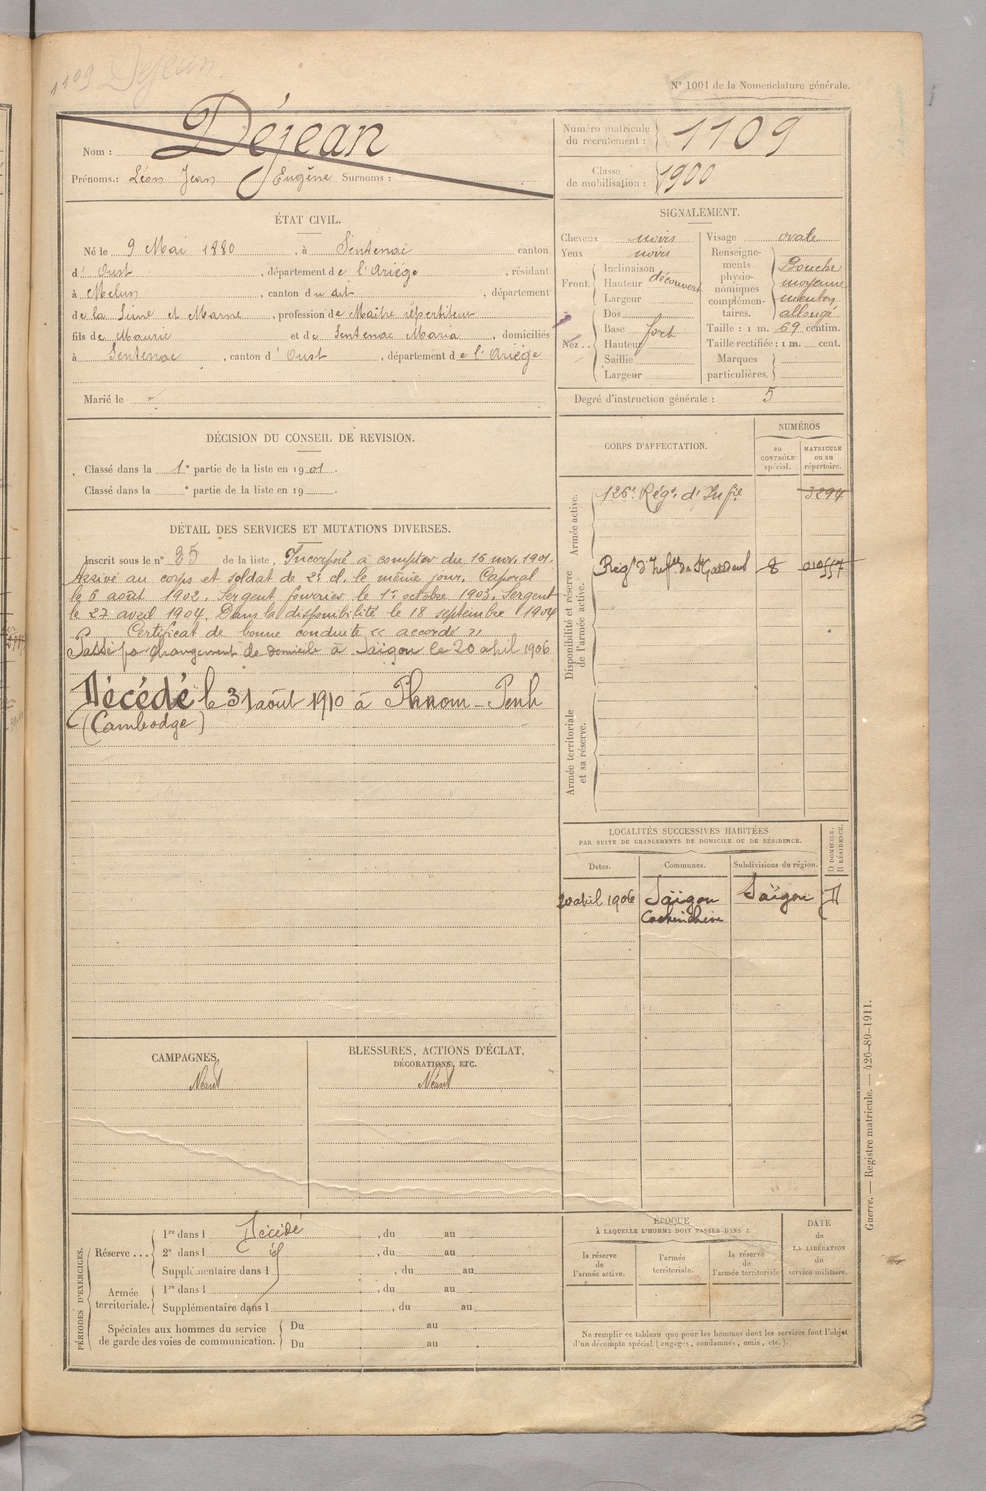 1109 Dejean
N° 1001 de la Nomenclature générale.
Nom : Déjean
Prénoms : Léon Jean Eugène Surnoms :
Numéro matricule du recrutement : 1109
Classe de mobilisation : 1900
ÉTAT CIVIL.
Né le 9 Mai 1880, à Sentenac canton
d'Oust, département de l'Ariège, résidant
à Melun, canton du dit, département
de la Seine et Marne, profession de Maître répétiteur
fils de Maurice et de Sentenac Maria, domiciliés
à Sentenac, canton d'Oust, département de l'Ariège
Marié le -
SIGNALEMENT.
Cheveux noirs
Yeux noirs
Front. { Inclinaison
Hauteur découvert
Largeur
Nez.. { Dos
Base fort
Hauteur
Saillie
Largeur
Visage ovale
Renseignements physionomiques complémentaires. { Bouche moyenne menton allongé
Taille : 1 m. 69 centim.
Taille rectifiée : 1 m. cent.
Marques particulières. {
Degré d'instruction générale : 5
DÉCISION DU CONSEIL DE REVISION.
Classé dans la 1e partie de la liste en 1901.
Classé dans la e partie de la liste en 19
DÉTAIL DES SERVICES ET MUTATIONS DIVERSES.
Inscrit sous le n° 25 de la liste, Incorporé à compter du 16 nov. 1901.
Arrivé au corps et soldat de 2e cl. le même jour. Caporal
le 6 août 1902. Sergent fourrier le 1er octobre 1903. Sergent
le 27 avril 1904. Dans la disponibilité le 18 septembre 1904
Certificat de bonne conduite « accordé »
Passé pr changement de domicile à Saïgon le 20 avril 1906
Décédé le 31 août 1910 à Phnom-Penh
(Cambodge)
CORPS D'AFFECTATION.
NUMÉROS
au CONTRÔLE spécial.
MATRICULE ou au répertoire.
Armée active.
126e Régt d'Infie 3294
Disponibilité et réserve de l'armée active.
Régt d'Inftie de St Gaudens 8
Armée territoriale et sa réserve.
LOCALITÉS SUCCESSIVES HABITÉES
PAR SUITE DE CHANGEMENTS DE DOMICILE OU DE RÉSIDENCE.
Dates. Communes. Subdivisions de région. D DOMICILE. R RÉSIDENCE.
20 avril 1906 Saïgon Cochinchine Saïgon D
CAMPAGNES.
Néant
BLESSURES, ACTIONS D'ÉCLAT,
DÉCORATIONS, ETC.
Néant
PÉRIODES D'EXERCICES.
Réserve... { 1re dans l Décédé, du au
2e dans l id, du au
Supplémentaire dans l, du au
Armée territoriale. { 1re dans l, du au
Supplémentaire dans l, du au
Spéciales aux hommes du service
de garde des voies de communication. { Du au
Du au
ÉPOQUE
À LAQUELLE L'HOMME DOIT PASSER DANS :
la réserve de l'armée active.
l'armée territoriale.
la réserve de l'armée territoriale
DATE de LA LIBÉRATION du service militaire.
Ne remplir ce tableau que pour les hommes dont les services font l'objet
d'un décompte spécial (engagés, condamnés, omis, etc.).
Guerre. — Registre matricule. — 426-89-1911.